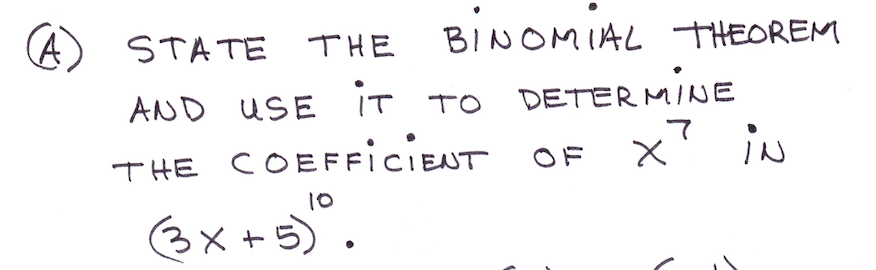 (A) STATE THE BINOMIAL THEOREM
AND USE IT TO DETERMINE
THE COEFFICIENT OF x⁷ IN
(3x + 5)¹⁰.